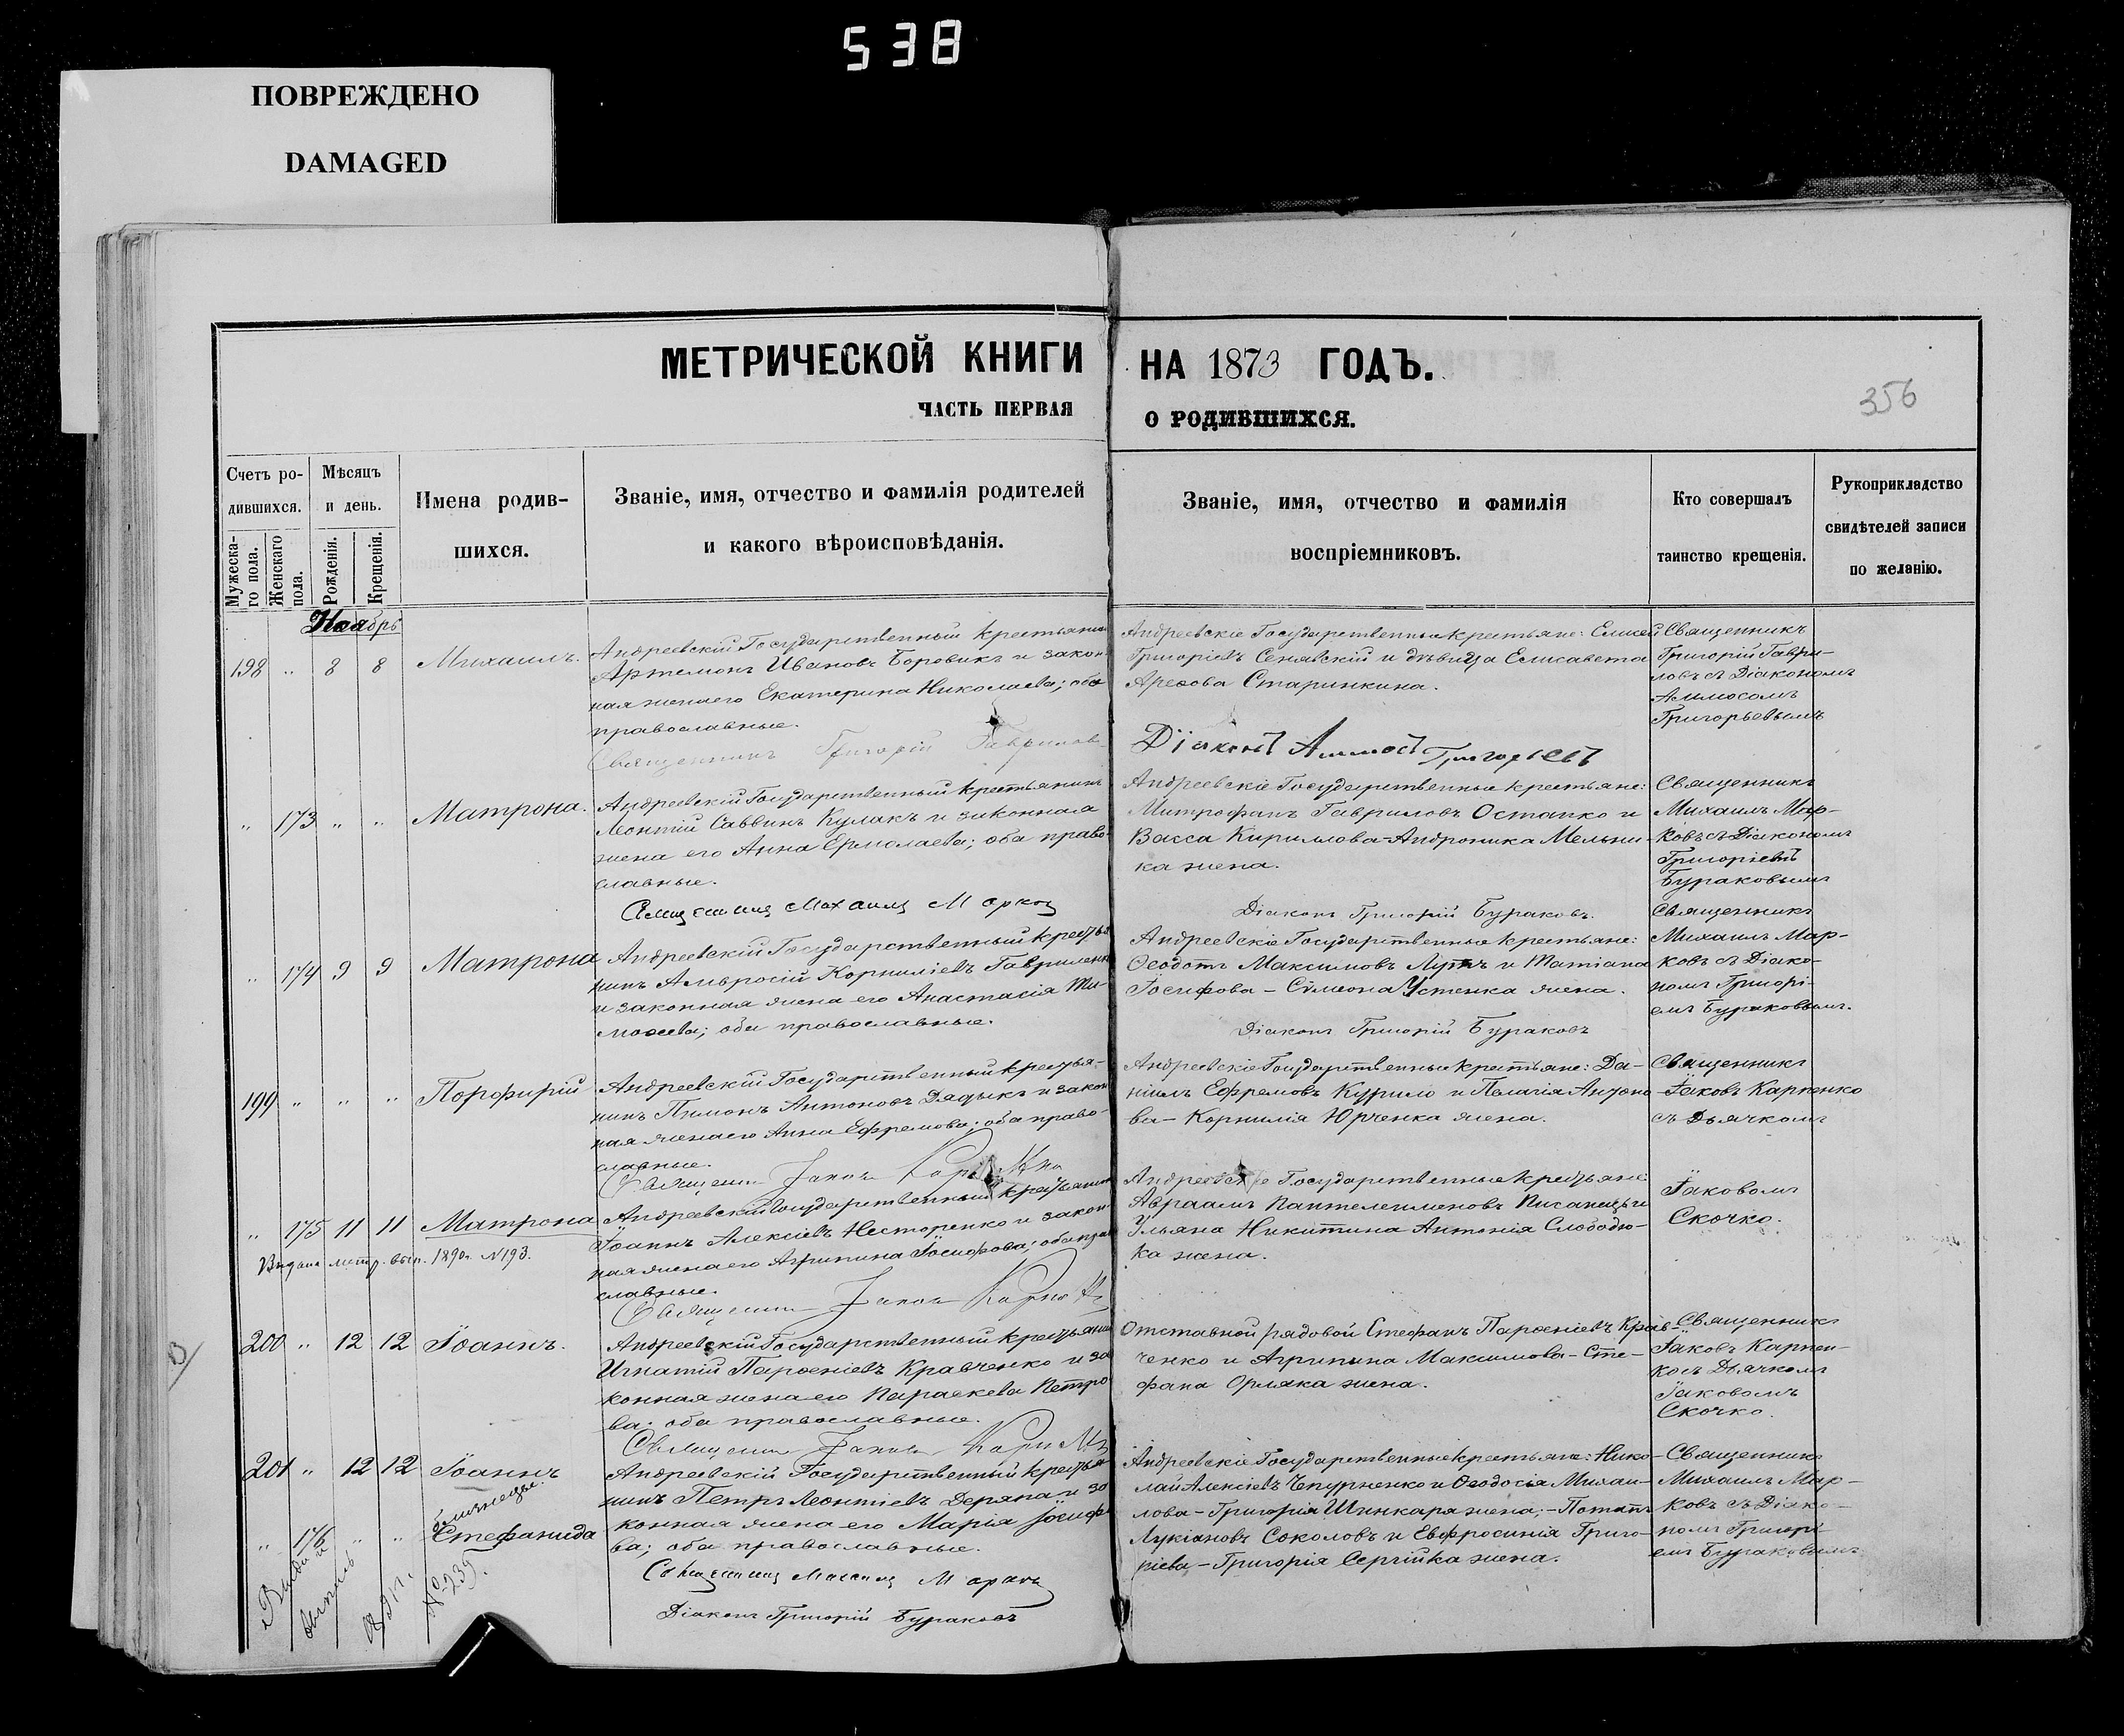 538
ПОВРЕЖДЕНО
DAMAGED
МЕТРИЧЕСКОЙ КНИГИ НА 1873 ГОДЪ.
ЧАСТЬ ПЕРВАЯ О РОДИВШИХСЯ.
356
Счетъ ро-
дившихся.
Мужеска-
го пола.
Женскаго
пола.
Мѣсяцъ
и день.
Рожденія.
Крещенія.
Имена родив-
шихся.
Званіе, имя, отчество и фамилія родителей
и какого вѣроисповѣданія.
Званіе, имя, отчество и фамилія
воспріемниковъ.
Кто совершалъ
таинство крещенія.
Рукоприкладство
свидѣтелей записи
по желанію.
Ноябрь
198 " 8 8 Михаилъ.
Андреевскій Государственный крестьянин
Артемонъ Ивановъ Боровикъ и закон
ная жена его Екатерина Николаева; оба
православные.
Священникъ Григорій Гаврилов
Андреевскіе Государственные крестьяне: Елисей
Григоріевъ Сенявскій и дѣвица Елисавета
Арефова Старинкина.
Діаконъ Аммосъ Григорьевъ
Священникъ
Григорій Гаври-
ловъ съ Діакономъ
Аммосомъ
Григорьевымъ
" 173 " " Матрона.
Андреевскій Государственный крестьянинъ
Леонтій Саввинъ Кулакъ и законная
жена его Анна Ермолаева; оба право-
славные.
Священникъ Михаилъ Марковъ
Андреевскіе Государственные крестьяне:
Митрофанъ Гавриловъ Остапко и
Васса Кириллова-Андроника Мельни-
ка жена.
Діаконъ Григорій Бураковъ.
Священникъ
Михаилъ Мар-
ковъ съ Діакономъ
Григоріемъ
Бураковымъ
" 174 9 9 Матрона
Андреевскій Государственный крестья
нинъ Амвросій Корниліевъ Гавриленк
и законная жена его Анастасія Ти-
мофеева; оба православные.
Андреевскіе Государственные крестьяне:
Ѳеодотъ Максимовъ и Татіана
Іосифова - Сѵмеона Устенка жена.
Діаконъ Григорій Бураковъ
Священникъ
Михаилъ Мар-
ковъ съ Діако-
номъ Григорі-
емъ Бураковымъ.
199 " " " Порфирій
Андреевскій Государственный крестья-
нинъ Пимонъ Антоновъ Дядыкъ и закон
ная жена его Анна Ефремова; оба право-
славные.
Священникъ Іаковъ Карпенко
Андреевскіе Государственные крестьяне: Да-
ніилъ Ефремовъ Курило и Пелагія Антоно
ва - Корнилія Юрченка жена.
Священникъ
Іаковъ Карпенко
съ Дьячкомъ
" 175 11 11 Матрона
Выдана метр. вып. 1890 г. №193.
Андреевскій Государственный крестьянин
Іоаннъ Алексіевъ Несторенко и закон
ная жена его Агрипина Іосифова; оба пра
славные.
Священникъ Іаковъ Карпенко
Андреевскіе Государственные крестьяне
Авраамъ Пантелеимоновъ Писанецъ и
Ульяна Никитина Антонія Слободю-
ка жена.
Іаковомъ
Скочко.
200 " 12 12 Іоаннъ.
Андреевскій Государственный крестьянин
Игнатій Парѳеніевъ Кравченко и за
конная жена его Параскева Петро
ва; оба православные.
Священникъ Іаковъ Карпенко
Отставной рядовой Стефанъ Парѳеніевъ Крав-
ченко и Агрипина Максимова - Сте-
фана Орлака жена.
Священникъ
Іаковъ Карпен-
ко съ Дьячкомъ
Іаковомъ
Скочко.
201 " 12 12 Іоаннъ
близнецы.
" 176 " " Стефанида
Выдана
выпись
№ 239.
Андреевскій Государственный крестья
нинъ Петръ Леонтіевъ Деряпа и за
конная жена его Марія Іосифо
ва; оба православные.
Священникъ Михаилъ Марковъ
Діаконъ Григорій Бураковъ
Андреевскіе Государственные крестьяне: Нико-
лай Алексіевъ Чепурненко и Ѳеодосія Михаи-
лова - Григорія Шинкаря жена; - Потапъ
Лукіановъ Соколовъ и Евфросинія Григо-
ріева - Григорія Сергійка жена.
Священникъ
Михаилъ Мар-
ковъ съ Діако-
номъ Григорі-
емъ Бураковымъ